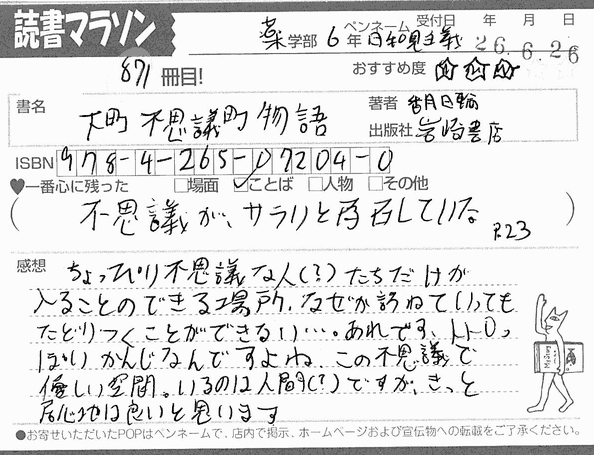 読書マラソン
薬学部 6年 ペンネーム 日和見主義 受付日 年 月 日
26.6.26
871冊目! おすすめ度 ☆☆☆
書名 大町不思議町物語
著者 香月日輪
出版社 岩崎書店
ISBN 978-4-265-07204-0
♥一番心に残った □場面 ☑ことば □人物 □その他
(不思議が、サラリと存在している。 P.23)
感想 ちょっぴり不思議な人(?)たちだけが
入ることのできる場所。なぜか訪ねていっても
たどりつくことができない…。あれです、トトロっ
ぽいかんじなんですよね。この不思議で
優しい空間。いるのは人間(?)ですが、きっと
居心地は良いと思います
●お寄せいただいたPOPはペンネームで、店内で掲示、ホームページおよび宣伝物への転載をご了承ください。